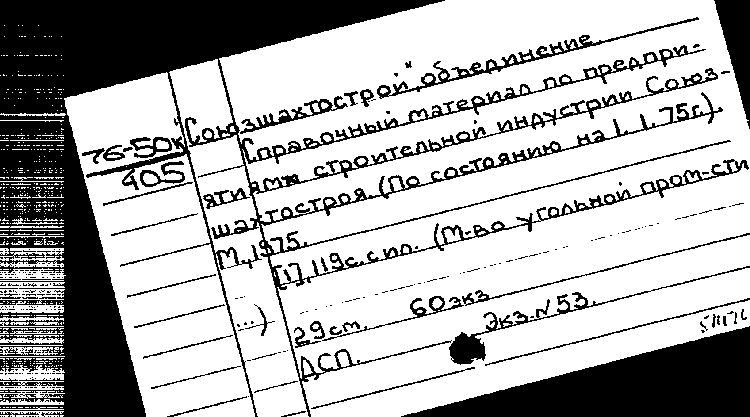 76-50к
405
"Союзшахтострой", объединение.
Справочный материал по предпри-
ятиям строительной индустрии Союз-
шахтостроя. (По состоянию на 1.1.75г.).
М., 1975.
[1], 119с. с ил. (М-во угольной пром-сти
...)
29см. 60экз
ДСП. Экз. № 53.